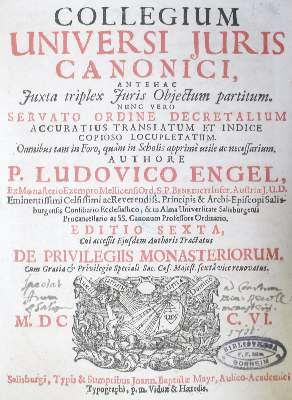 COLLEGIUM
UNIVERSI JURIS
CANONICI,
ANTEHAC
Juxta triplex Juris Objectum partitum.
NUNC VERO
SERVATO ORDINE DECRETALIUM
ACCURATIUS TRANSLATUM ET INDICE
COPIOSO LOCUPLETATUM.
Omnibus tam in Foro, quàm in Scholis apprimè utile ac necessarium.
AUTHORE
P. LUDOVICO ENGEL,
Ex Monasterio Exempto Mellicensi Ord. S. P. BENEDICTI Infer. Austriæ, J. U. D.
Eminentissimi Celsissimi ac Reverendiss. Principis & Archi-Episcopi Salis-
burgensis Consiliario Ecclesiastico, & in Alma Universitate Salisburgensi
Procancellario ac SS. Canonum Professore Ordinario.
EDITIO SEXTA,
Cui accessit Ejusdem Authoris Tractatus
DE PRIVILEGIIS MONASTERIORUM.
Cum Gratia & Privilegio Speciali Sac. Cæs. Majest. sextâ vice renovatus.
M. DC C. VI.
BIBLIOTHECA
BORNHEIM
Salisburgi, Typis & Sumptibus Joann. Baptistæ Mayr, Aulico-Academici
Typographi, p. m. Viduæ & Hæredis.